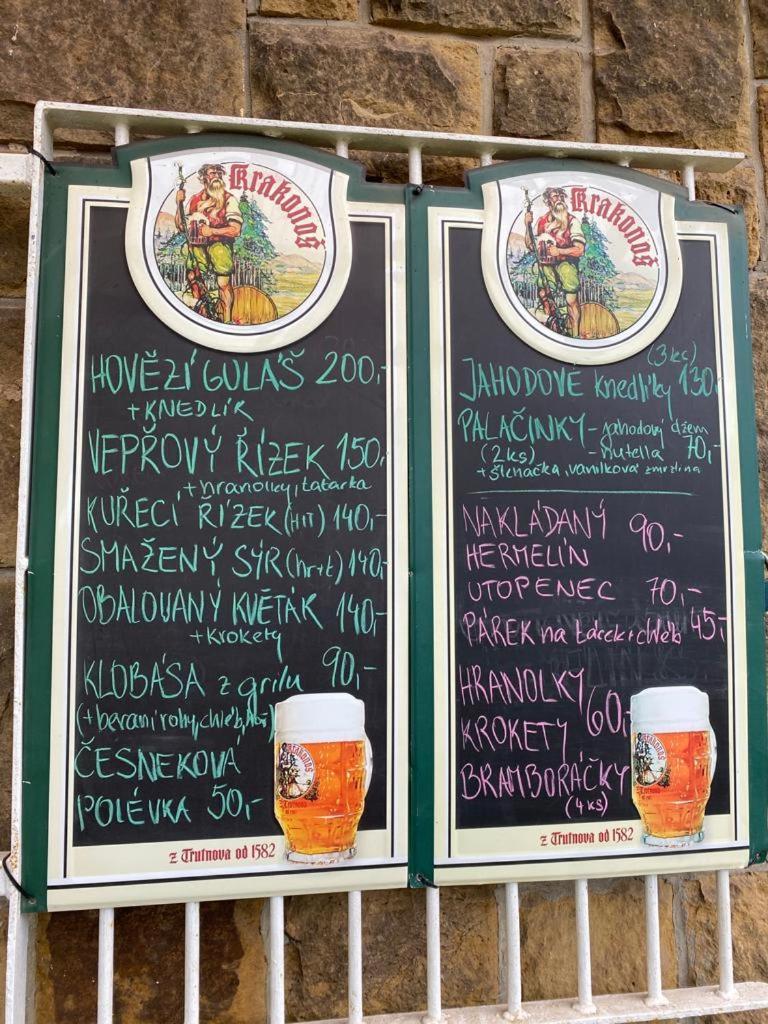 Krakonoš
HOVĚZÍ GULÁŠ 200,-
+ KNEDLÍK
VEPŘOVÝ ŘÍZEK 150,-
+ hranolky, tatarka
KUŘECÍ ŘÍZEK (H+T) 140,-
SMAŽENÝ SÝR (hr+t) 140,-
OBALOVANÝ KVĚTÁK 140,-
+ krokety
KLOBÁSA z grilu 90,-
(+ beraní rohy, chléb,
ČESNEKOVÁ
POLÉVKA 50,-
z Trutnova od 1582
Krakonoš
(3 ks)
JAHODOVÉ knedlíky 130,-
PALAČINKY - jahodový džem
(2 ks) - nutella 70,-
+ šlehačka, vanilková zmrzlina
NAKLÁDANÝ 90,-
HERMELÍN
UTOPENEC 70,-
PÁREK na tácek + chléb 45,-
HRANOLKY
KROKETY 60,-
BRAMBORÁČKY
(4 ks)
z Trutnova od 1582